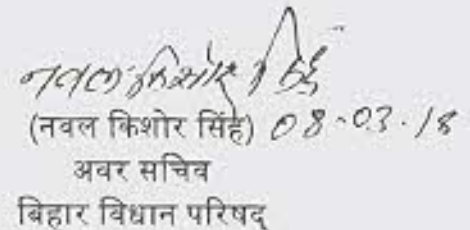 नवल किशोर सिंह
(नवल किशोर सिंह) 08-03-18
अवर सचिव
बिहार विधान परिषद्